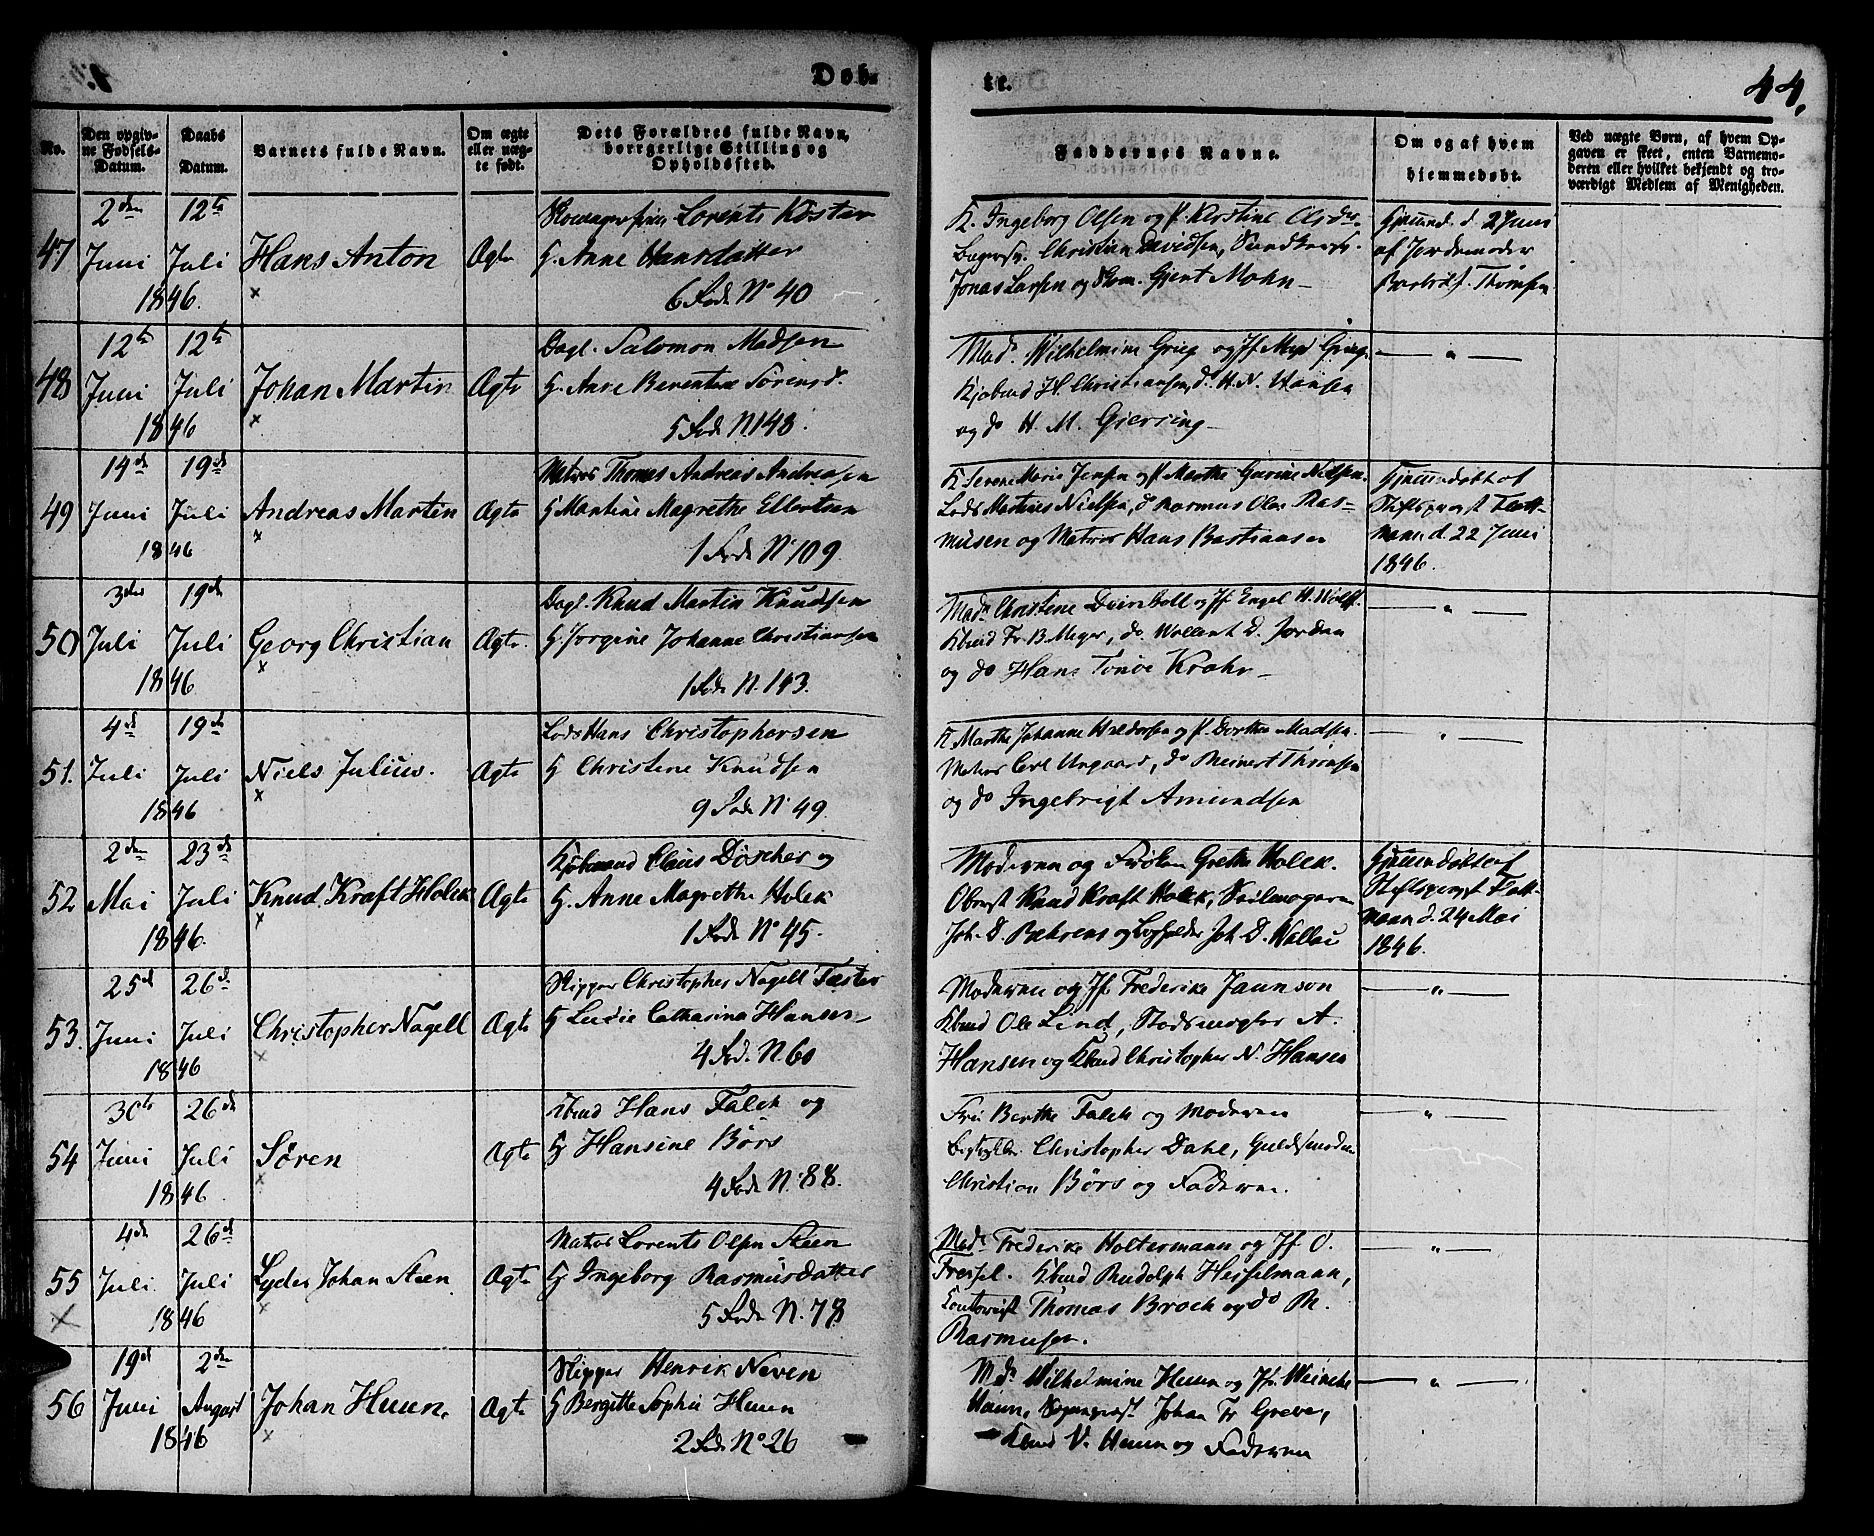 Døb-
te.
44.
No.
Den opgiv-
ne Fødsels-
Datum.
Daabs
Datum.
Barnets fulde Navn.
Om ægte
eller uæg-
te født.
Dets Forældres fulde Navn,
borgerlige Stilling og
Opholdssted.
Faddernes Navne.
Om og af hvem
hjemmedøbt.
Ved uægte Børn, af hvem Op-
gaven er skeet, enten Barnemo-
deren eller hvilket bekjendt og tro-
værdigt Medlem af Menigheden.
47
2den Juni 1846.
12te Juli
Hans Anton
Ægte
Lorents Köster
H. Anne Hansdatter
6 Fod. No 40
K. Ingeborg Olsen og P. Kerstine Olsdr.
Christian Davidsen,
Jonas Larsen og Gjert Mohn
d. 2 Juni
af Jordemoder
Thomsen
48
12te Juni 1846
12te Juli
Johan Martin
Ægte
Dagl. Salomon Madsen
H. Anne Berentine Sørensd.
5 Fod. N 148.
Mad. Wilhelmine Grieg og Jf. Grieg
Kjøbmd H. Christiansen, do H. N. Hansen
og do H. M. Giersing
49
14de Juni 1846
19de Juli
Andreas Martin
Ægte
Matros Thomas Andreas Andreasen
H Martine Magrethe Ellertsen
1 Fod. No 109.
K Serene Marie Jensen og P. Marthe Gurine Nielsen.
Lods Martines Nielsen, do Rasmus Olai Ras-
musen og Matros Hans Bastiansen
Hjemmedøbt af
Stiftsprovst
d. 22 Juni
1846.
50
3die Juli 1846
19de Juli
Georg Christian
Ægte
Dagl. Knud Martin Knudsen
H Jorgine Johanne Christiansen
1 Fod. N. 143.
Madm Christine og Jf. Engel H. Wolff.
Kbmd Fr. B. Meyer, do. Wollert D. Jordan
og do Hans Tonøe Krohn
— " —
51.
4de Juli 1846
19de Juli
Niels Julius.
Ægte
Lods Hans Christophersen
H Christine Knudsen
9 Fod. No 49.
K Marthe Johanne Haldorsen og P. Dorthea Madsen.
Matros Carl Ungaard, do Reinert Thomsen
og do Ingebrigt Amundsen
— " —
52
2den Mai 1846.
23de Juli
Knud Kraft Holck
Ægte
Kjøbmand Claus Döscher og
H. Anne Magrethe Holck
1 Fod. No 45.
Moderen og Frøken Grethe Holck.
Oberst Knud Kraft Holck, Seilmager
Joh. D. Behrens og Joh D. Wallau
Hjemmedøbt af
Stiftsprovst
d. 24 Mai
1846.
53.
25de Juni 1846
26de Juli
Christopher Nagell
Ægte
Skipper Christopher Nagell
H Lucie Catharina Hansen
4 Fod. N. 60
Moderen og Jf. Frederike Jaunson
Kbmd Ole Lind, A.
Hansen og Kbmd Christopher N. Hansen
— " —
54
30te Juni 1846
26de Juli
Søren
Ægte
Kbmd Hans Falck og
H Hansine Børs
4 Fod. N. 88.
Fru Berthe Falck og Moderen
Christopher Dahl, Guldsmed
Christian Børs og Faderen.
— " —
55
4de Juli 1846
26de Juli
Lyder Johan Steen
Ægte
Matros Lorents Olsen Steen
H Ingeborg Rasmusdatter
5 Fod. N. 78
Made Frederike Holtermann og Jf. O.
Fressel. Kbmd Rudolph Heiselmann,
Contorist Thomas Broch og do R.
Rasmusen.
— " —
56
19de Juni 1846
2den August
Johan Huun.
Ægte
Skipper Henrik Neven
H Bergitte Sophie Huun
2 Fod. No 26
Md. Wilhelmine Huun og Jf.
Huun, Johan Fr Greve,
Kbmd V. Huun og Faderen
— " —